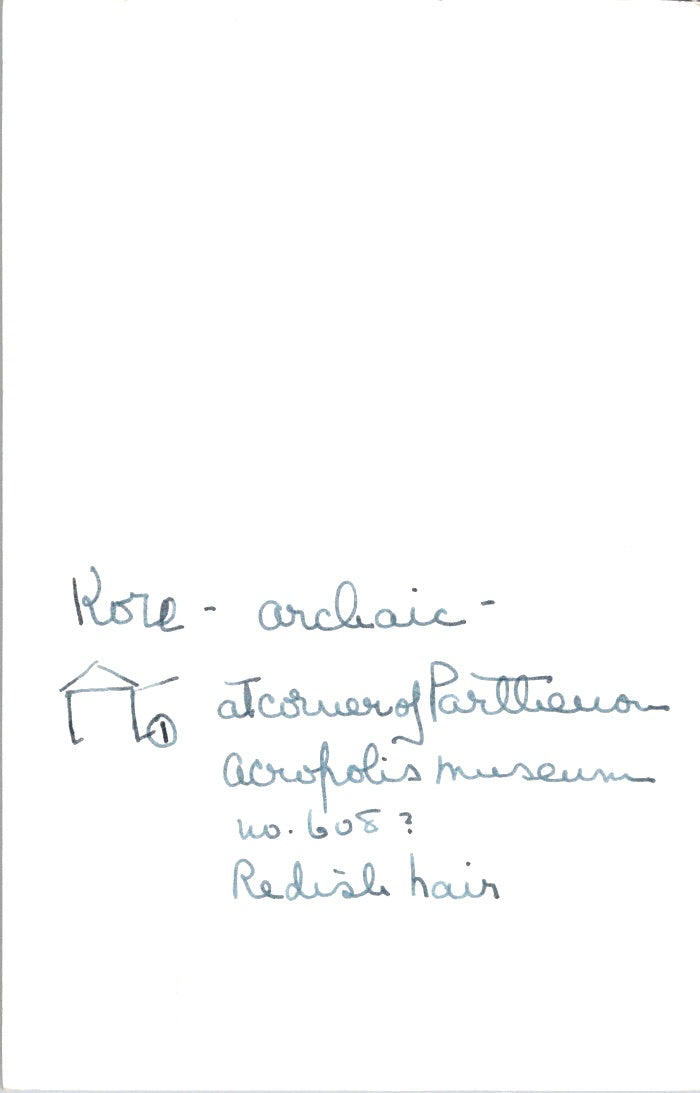 Kore - archaic -
① at corner of Parthenon
Acropolis museum
no. 608 ?
Redish hair